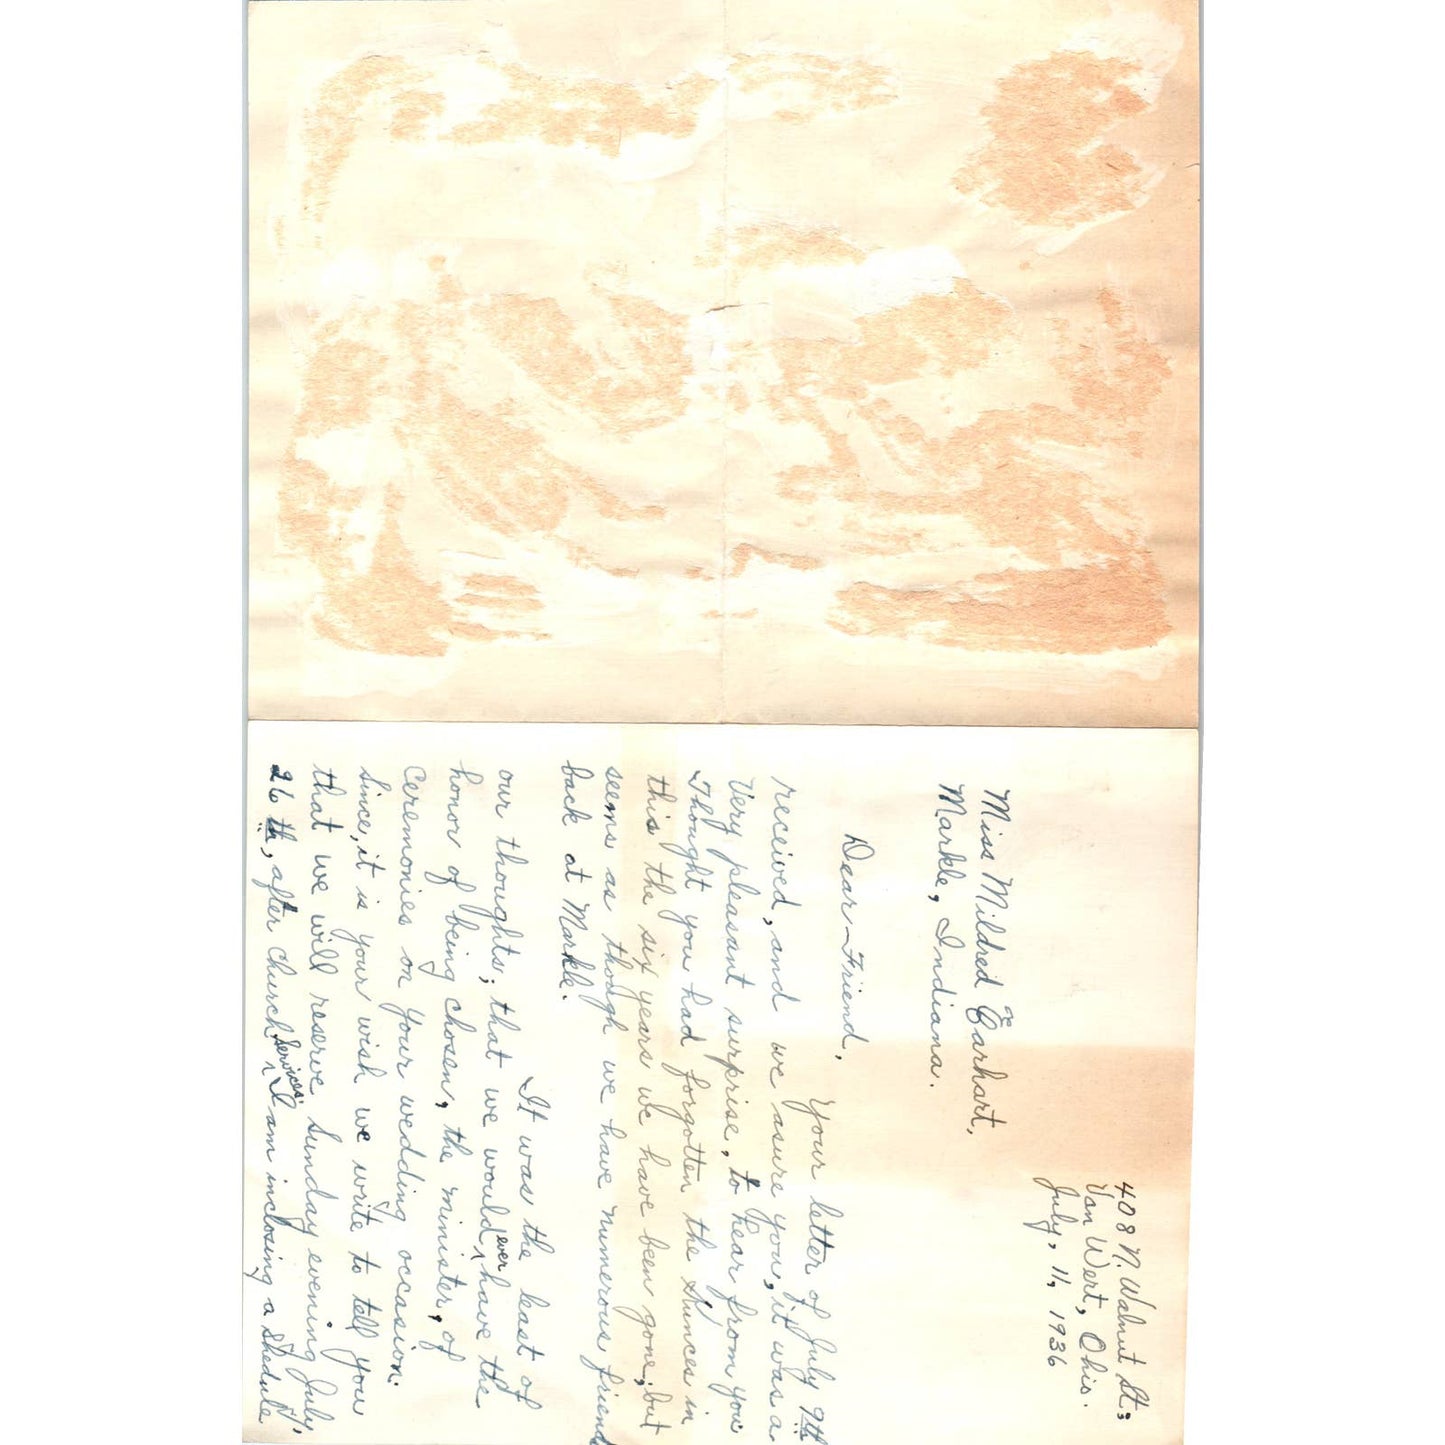 408 N. Walnut St;
Van Wert, Ohio.
July, 11, 1936
Miss Mildred E. Carhart,
Markle, Indiana.
Dear Friend,
Your letter of July 9th
received, and we asure you, it was a
Very pleasant surprise, to hear from you
Thought you had forgotten the in
this the six years we have been gone; but
seems as though we have numerous friends
back at Markle.
It was the least of
our thoughts; that we would ever have the
honor of being chosen, the minister, of
Ceremonies on your wedding occasion.
Since, it is your wish we write to tell you
that we will reserve Sunday evening July,
26 th, after church services. I am inclosing a shedule